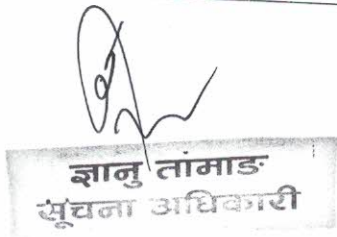 ज्ञानु तामाङ
सूचना अधिकारी